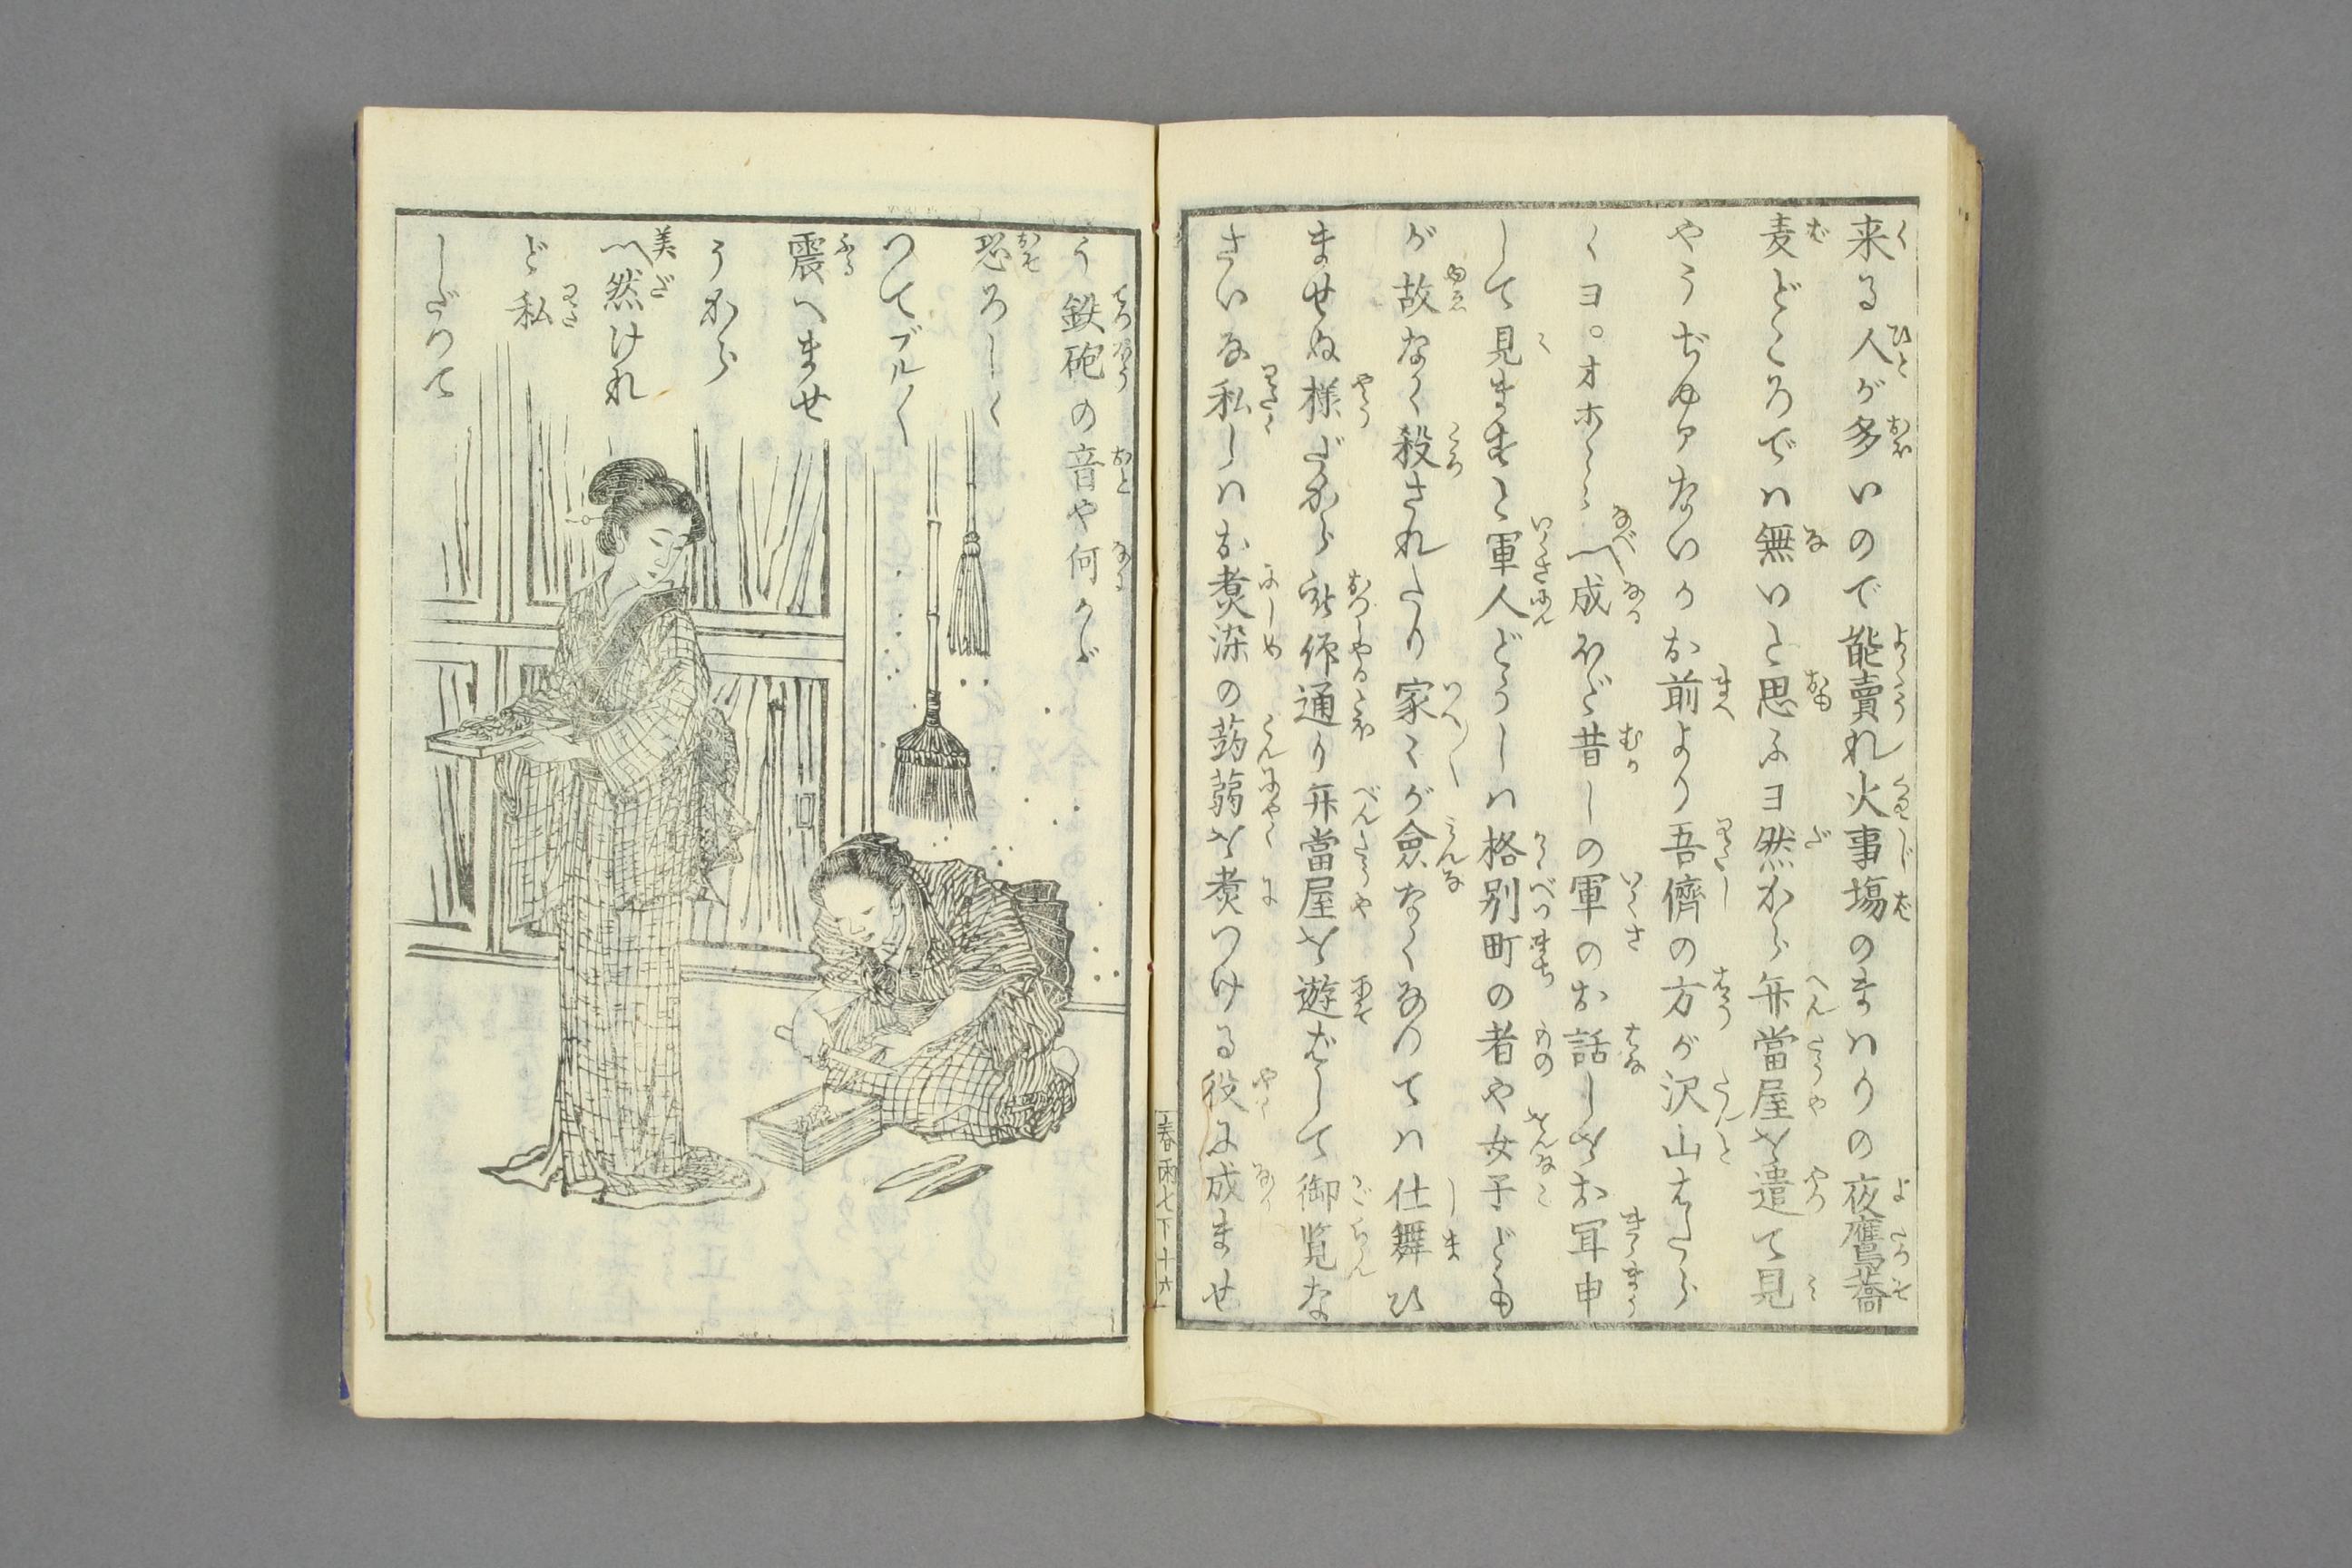 来る人が多いので能賣れ火事塲のまはりの夜鷹蕎
麦どころでは無いと思ふヨ然から弁當屋を遣て見
やうぢゆアないかお前より吾儕の方が沢山はたら
くヨ。オホヽヽ〽成ほど昔しの軍のお話しをお耳申
して見ますと軍人どうしは格別町の者や女子ども
が故なく殺されたり家々が倉なくなつては仕舞ひ
ませぬ様だから被仰通り弁當屋を遊ばして御覧な
さいな私しはお煑染の蒟蒻を煑つける役に成ませ
う鉄砲の音や何かゞ
恐ろしく
つてブル〳〵
震へませ
うから
〽然けれ
ど私
しだつて
春雨七下十六